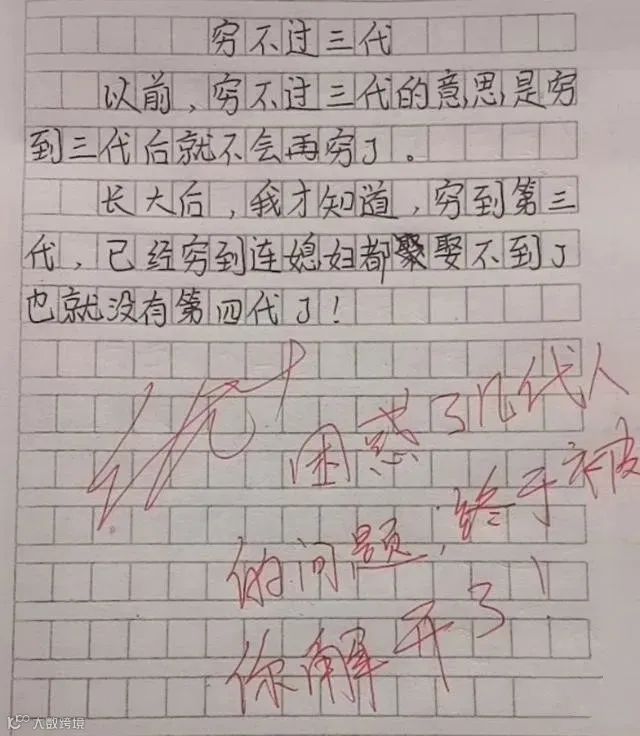 穷不过三代
以前,穷不过三代的意思是穷
到三代后就不会再穷了。
长大后,我才知道,穷到第三
代,已经穷到连媳妇都娶不到了
也就没有第四代了!
优+
困惑了几代人
的问题,终于被
你解开了!
大数跨境